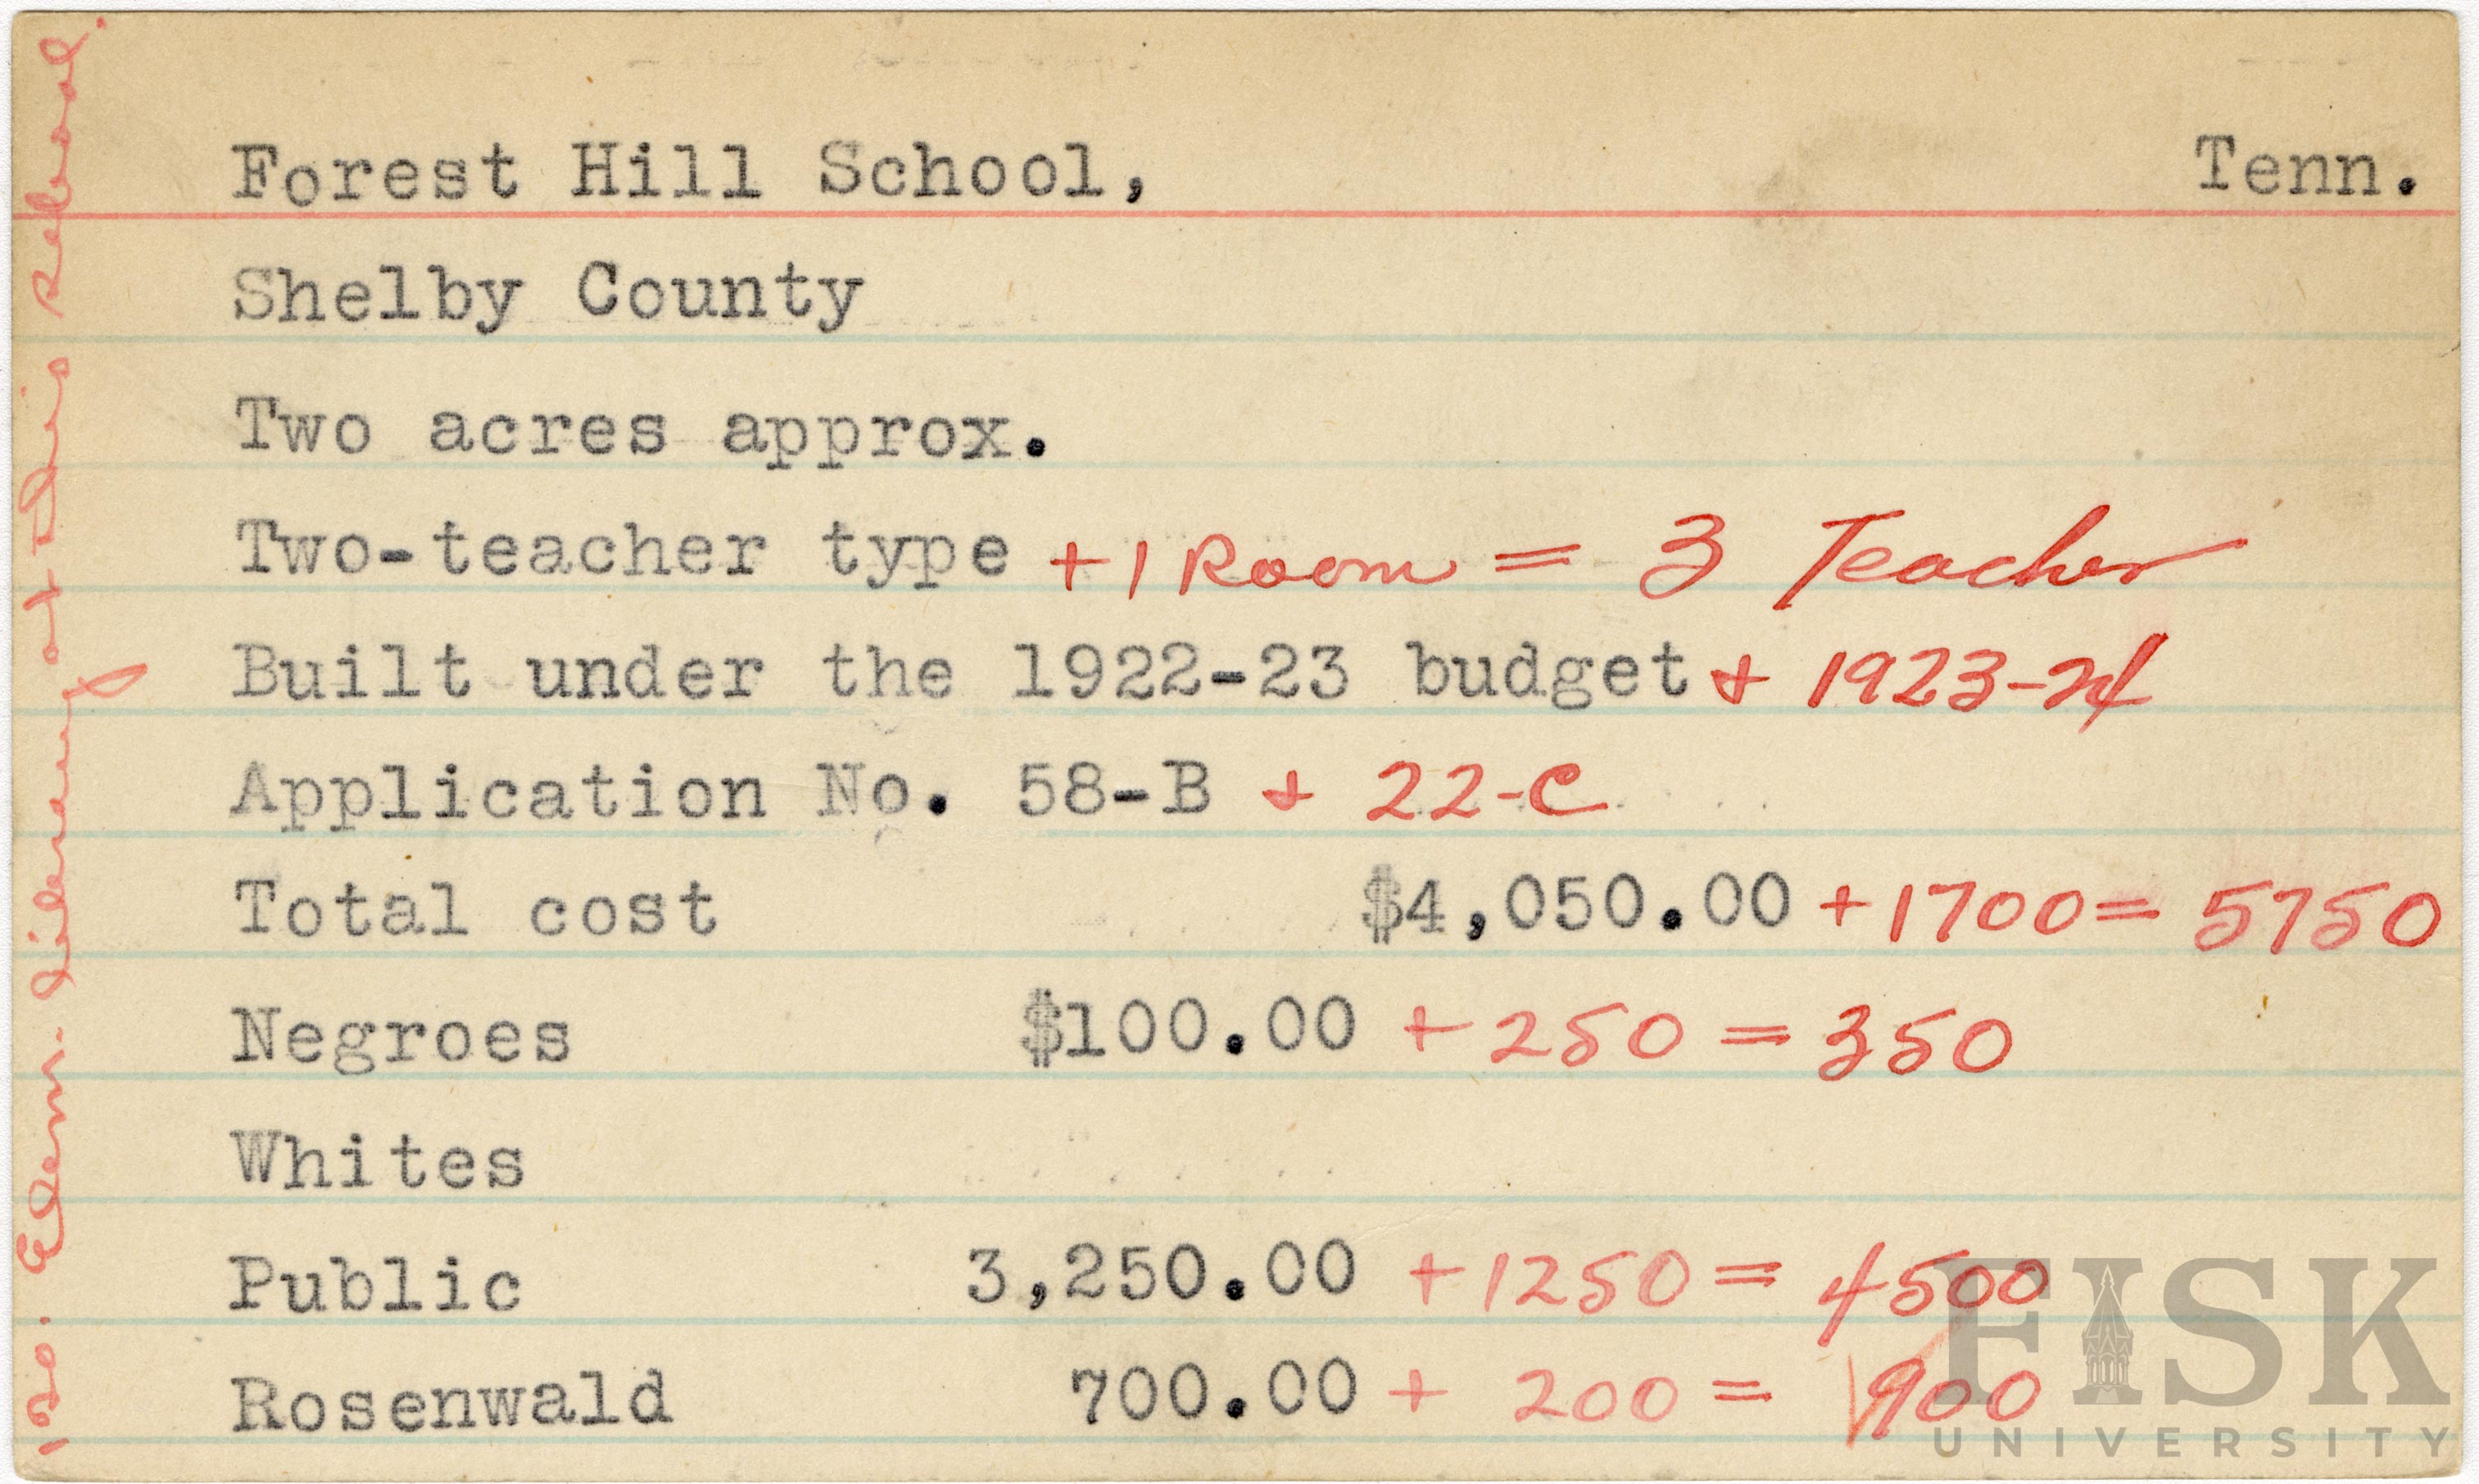 Forest Hill School, Tenn.
Shelby County
Two acres approx.
Two-teacher type + 1 Room = 3 Teacher
Built under the 1922-23 budget + 1923-24
Application No. 58-B + 22-C
Total cost $4,050.00 + 1700 = 5750
Negroes $100.00 + 250 = 350
Whites
Public 3,250.00 + 1250 = 4500
Rosenwald 700.00 + 200 = 900
120. Elem. library at this school.
FISK
UNIVERSITY